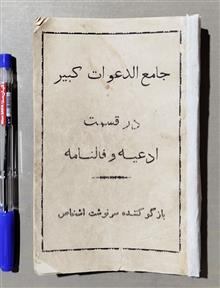 جامع الدعوات کبیر
در قسمت
ادعیه و فالنامه
بازگو کننده سرنوشت اشخاص